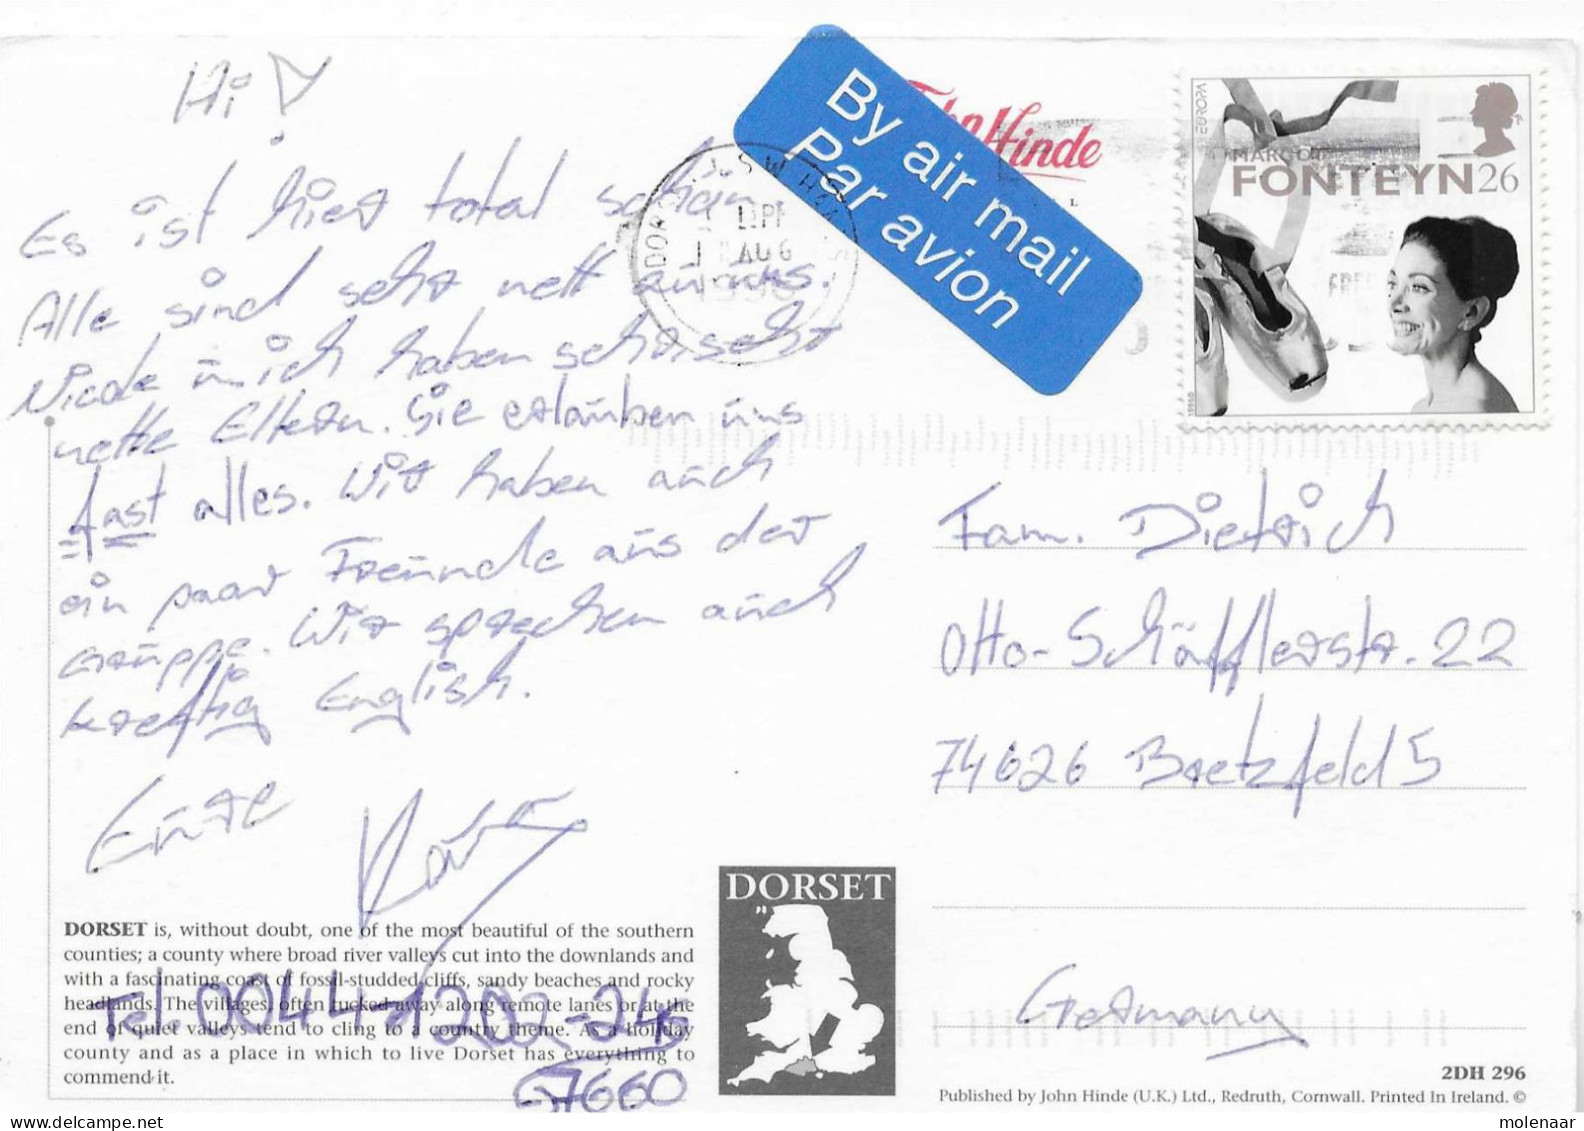 Hi!
Es ist hier total schön.
Alle sind sehr nett zu uns.
Nicole u. ich haben sehr, sehr
nette Eltern. Sie erlauben uns
fast alles. Wir haben auch
ein paar Freunde aus der
Gruppe. Wir sprechen auch
kräftig Englisch.
Eure
Tel. 0044-1202-240
67660
DORSET is, without doubt, one of the most beautiful of the southern
counties; a county where broad river valleys cut into the downlands and
with a fascinating coast of fossil-studded cliffs, sandy beaches and rocky
headlands. The villages, often tucked away along remote lanes or at the
end of quiet valleys tend to cling to a country theme. As a holiday
county and as a place in which to live Dorset has everything to
commend it.
DORSET
By air mail
Par avion
Hinde
AUG
EUROPA
MARGOT
FONTEYN 26
Fam. Dietrich
Otto-Schäfflerstr. 22
74626 Bretzfeld 5
Germany
2DH 296
Published by John Hinde (U.K.) Ltd., Redruth, Cornwall. Printed In Ireland. ©
molenaar